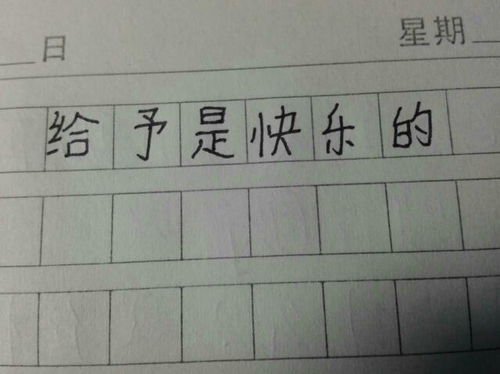 日 星期
给予是快乐的